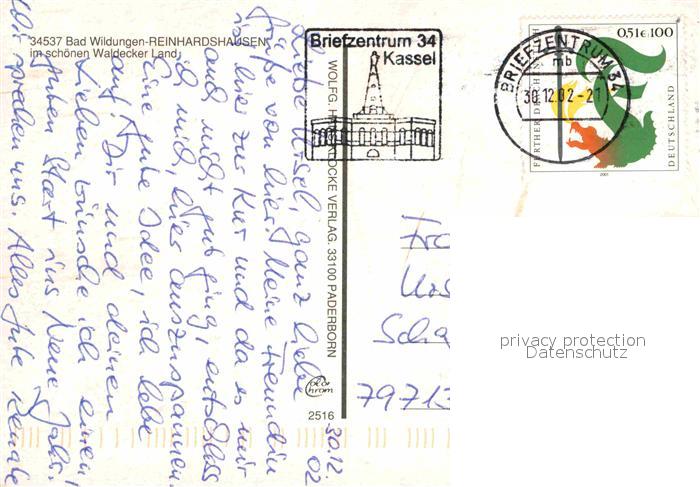 34537 Bad Wildungen-REINHARDSHAUSEN
im schönen Waldecker Land
Briefzentrum 34
Kassel
BRIEFZENTRUM 34
mb
30.12.02-21
0,51€ 100
FURTHER DRACHEN
DEUTSCHLAND
2001
30.12.
02
Liebe Ursel, ganz liebe
Grüße von hier! Meine Freundin
ist hier zur Kur und da es mir
auch nicht gut ging, entschloss
ich mich, hier auszuspannen.
Eine gute Idee, ich lebe
auf! Dir und deinen
Lieben wünsche ich einen
guten Start ins Neue Jahr.
Wir sprechen uns. Alles Gute Renate
WOLFG. H. LOCKE VERLAG, 33100 PADERBORN
color
chrom
2516
79713
privacy protection
Datenschutz